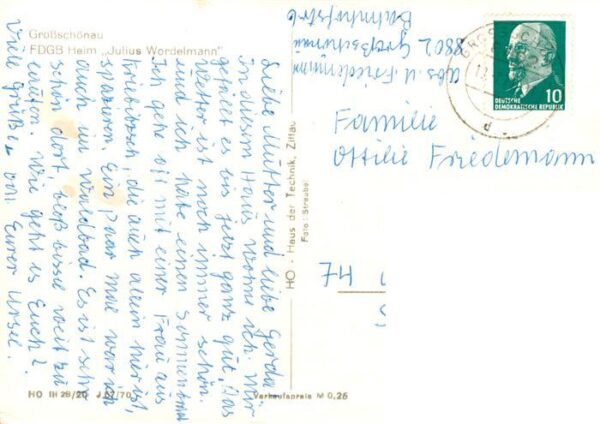 Großschönau
FDGB Heim „Julius Wordelmann"
Liebe Mutter und liebe Gerda
In diesem Haus wohne ich. Mir
gefällt es bis jetzt ganz gut, das
Wetter ist noch immer schön.
und ich habe einen Sonnenbrand
Ich gehe oft mit einer Frau aus
die auch allein hier ist,
spazieren. Ein paar mal war ich
auch im Waldbad. Es ist sehr
schön dort, bloß bissel weit zu
laufen. Wie geht es Euch?
Viele Grüße von Eurer Ursel.
HO III 26/20 J 57/70
HO - Haus der Technik, Zittau
Foto: Straube
Verkaufspreis M 0,25
Abs. U. Friedemann
8802 Großschönau
Bahnhofstr
DEUTSCHE
DEMOKRATISCHE REPUBLIK
10
Familie
Ottilie Friedemann
74